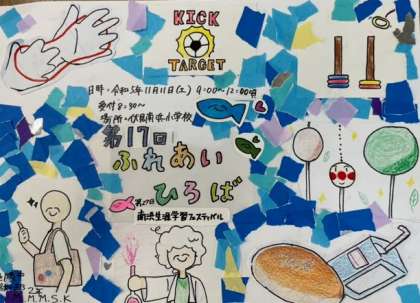 KICK
TARGET
日時・令和5年11月11日(土) 9:00〜12:00頃
受付 8:30〜
場所・伏見南浜小学校
第17回
ふれあい
ひろば
第27回
南浜生涯学習フェスティバル
2年
M.M.S.K